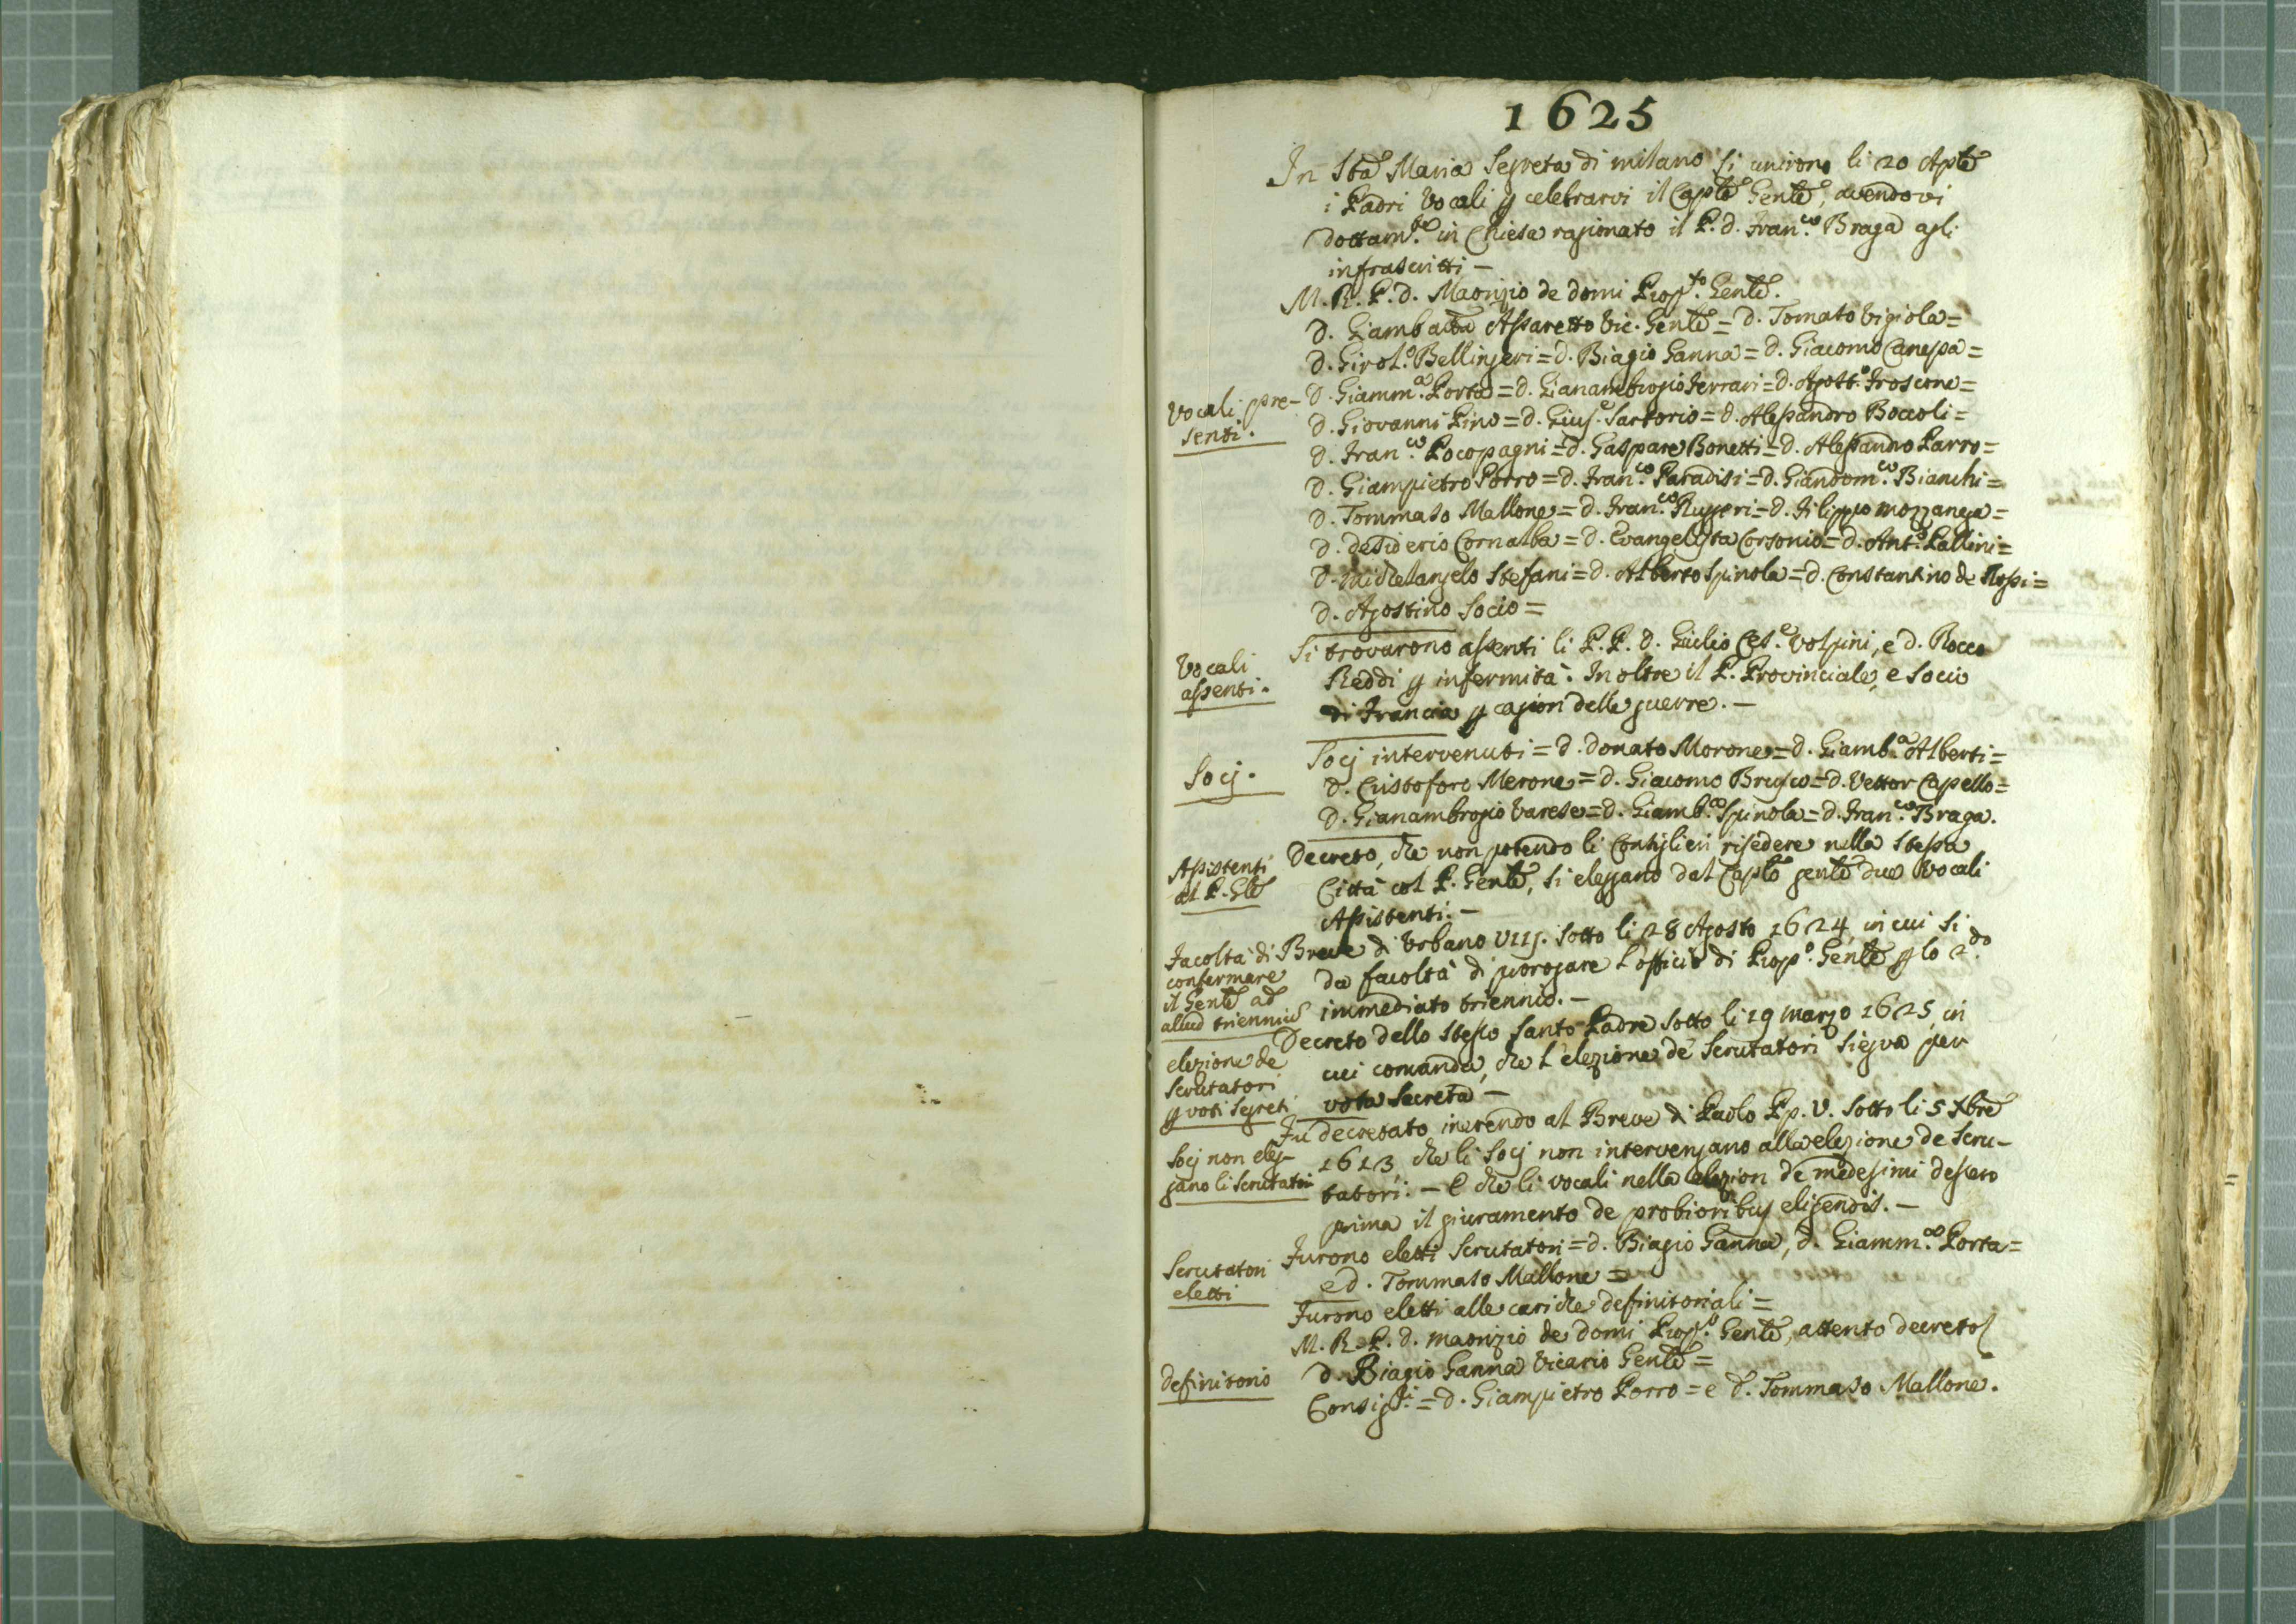 1625
In Sta Maria Segreta di milano si unirono li 20 Aple
i Padri Vocali p celebrarvi il Caplo Genle, avendovi
dottam.te in Chiesa ragionato il P. d. Fran.co Braga agli
infrascritti –
M. R. P. d. Maorizio de domi Prop.to Genle.
D. Giambatta Assaretto Vic. Genle = d. Tomaso Vigiola =
D. Girol.o Bellingeri = d. Biagio Ganna = d. Giacomo Canepa =
Vocali pre-
senti.
D. Giamm.a Porta = d. Gianambrogio Ferrari = d. Agost.o Froscone =
D. Giovanni Pino = d. Gius.e Sartorio = d. Alessandro Boccoli =
D. Fran.co Pocopagni = d. Gaspare Bonetti = d. Alessandro Parro =
D. Giampietro Porro = d. Fran.co Paradisi = d. Giandom.co Bianchi =
D. Tommaso Mallone = d. Fran.co Rugeri = d. Filippo mozzanega =
D. desiderio Cornalba = d. Evangelista Corsonio = d. Ant.o Pallini =
D. michelangelo Stefani = d. Alberto Spinola = d. Constantino de Rossi =
D. Agostino Socio =
Vocali
assenti.
Si trovarono assenti li P.P. d. Giulio Ces.e Volpini, e d. Rocco
Reddi p infermità. Inoltre il P. Provinciale, e Socio
di Francia p cagion delle guerre. –
Socj.
Socj intervenuti = d. donato Morone = d. Giamb.a Alberti =
D. Cristoforo Merone = d. Giacomo Brusco = d. Vettor Capello =
D. Gianambrogio Varese = d. Giamb.a Spinola = d. Fran.co Braga.
Assistenti
al P. Gle
Decreto, che non potendo li Consiglieri risedere nella stessa
Città col P. Genle, si eleggano dal Caplo genle due Vocali
Assistenti. –
Facoltà di
confermare
il Genle ad
aliud trienniu
Breve di Urbano VIIJ. sotto li 28 Agosto 1624, in cui si
da facoltà di prorogare l'officio di Prop.o Genle p lo 2.do
immediato triennio. –
elezione de
Scrutatori
p voti segreti
Decreto dello stesso Santo Padre sotto li 19 marzo 1625, in
cui comanda, che l'elezione de' Scrutatori siegua per
vota secreta –
Socj non eleg-
gano li scrutatori
Fu decretato inerendo al Breve di Paolo Pp. V. sotto li 5 Xbre
1613, che li Socj non intervengano alla elezione de Scru-
tatori. – E che li vocali nella elezion de medesimi dessero
prima il giuramento de probioribus eligendis. –
Scrutatori
eletti
Furono eletti Scrutatori = d. Biagio Ganna, d. Giamm.a Porta =
e d. Tommaso Mallone =
Furono eletti alle cariche definitoriali =
M. R. P. d. maorizio de domi Prop.o Genle, attento decreto
definitorio
D. Biagio Ganna Vicario Genle =
Consigl.i = d. Giampietro Porro = e d. Tommaso Mallone.